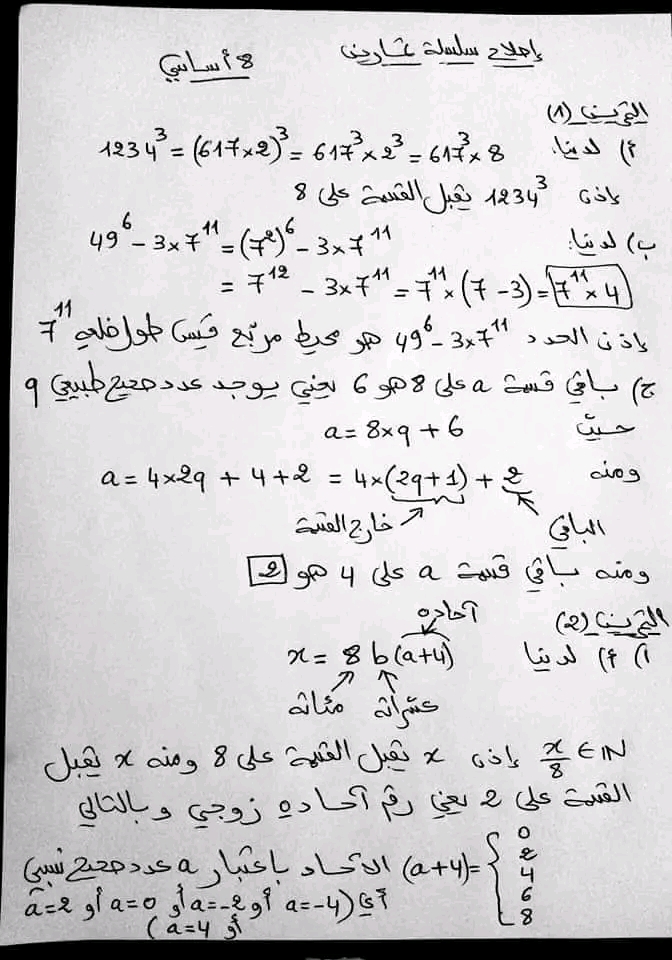 إصلاح سلسلة تمارين 8 أساسي
التمرين (1)
أ) لدينا: 1234³ = (617×2)³ = 617³ × 2³ = 617³ × 8
إذن 1234³ يقبل القسمة على 8
ب) لدينا: 49⁶ − 3×7¹¹ = (7²)⁶ − 3×7¹¹
= 7¹² − 3×7¹¹ = 7¹¹ × (7 − 3) = 7¹¹ × 4
إذن العدد 49⁶ − 3×7¹¹ هو محيط مربّع قيس طول ضلعه 7¹¹
ج) باقي قسمة a على 8 هو 6 يعني يوجد عدد صحيح طبيعي q
حيث a = 8×q + 6
ومنه a = 4×2q + 4 + 2 = 4×(2q+1) + 2
خارج القسمة الباقي
ومنه باقي قسمة a على 4 هو 2
التمرين (2)
آحاده
1) أ) لدينا x = 8 b (a+4)
مئاته عشراته
x/8 ∈ IN إذن x يقبل القسمة على 8 ومنه x يقبل
القسمة على 2 يعني رقم آحاده زوجي وبالتالي
(a+4) = { 0 2 4 6 8 الآحاد باعتبار a عدد صحيح نسبي
أي (a=-4 أو a=-2 أو a=0 أو a=2
أو a=4)